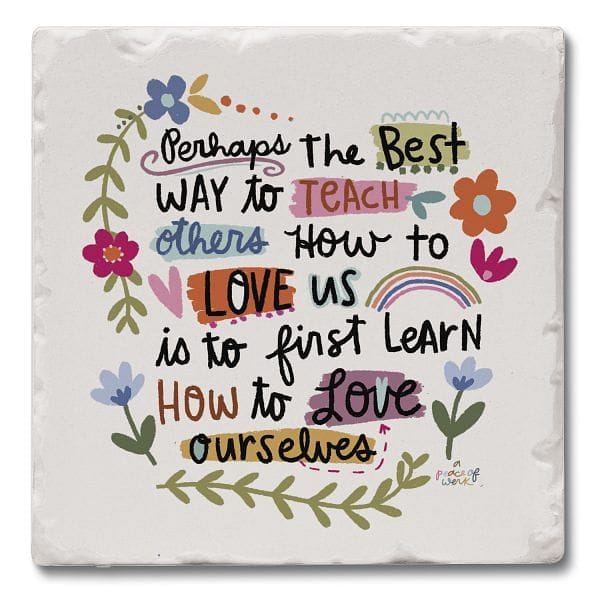 Perhaps the Best
WAY to TEACH
others How to
LOVE us
is to first LEARN
HOW to Love
ourselves
a
peace of
werk